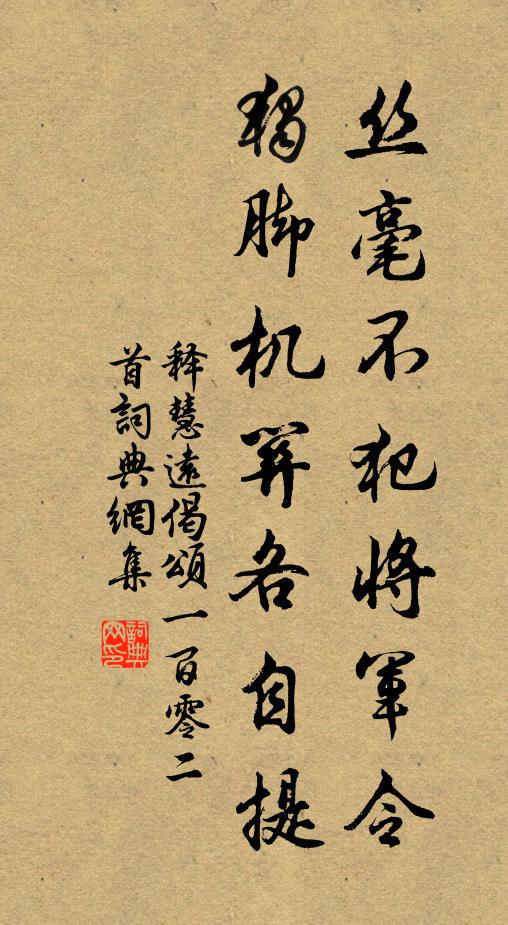 丝毫不犯将军令
独脚机关各自提
释慧远偈颂一百零二
首词典网集
词典网印